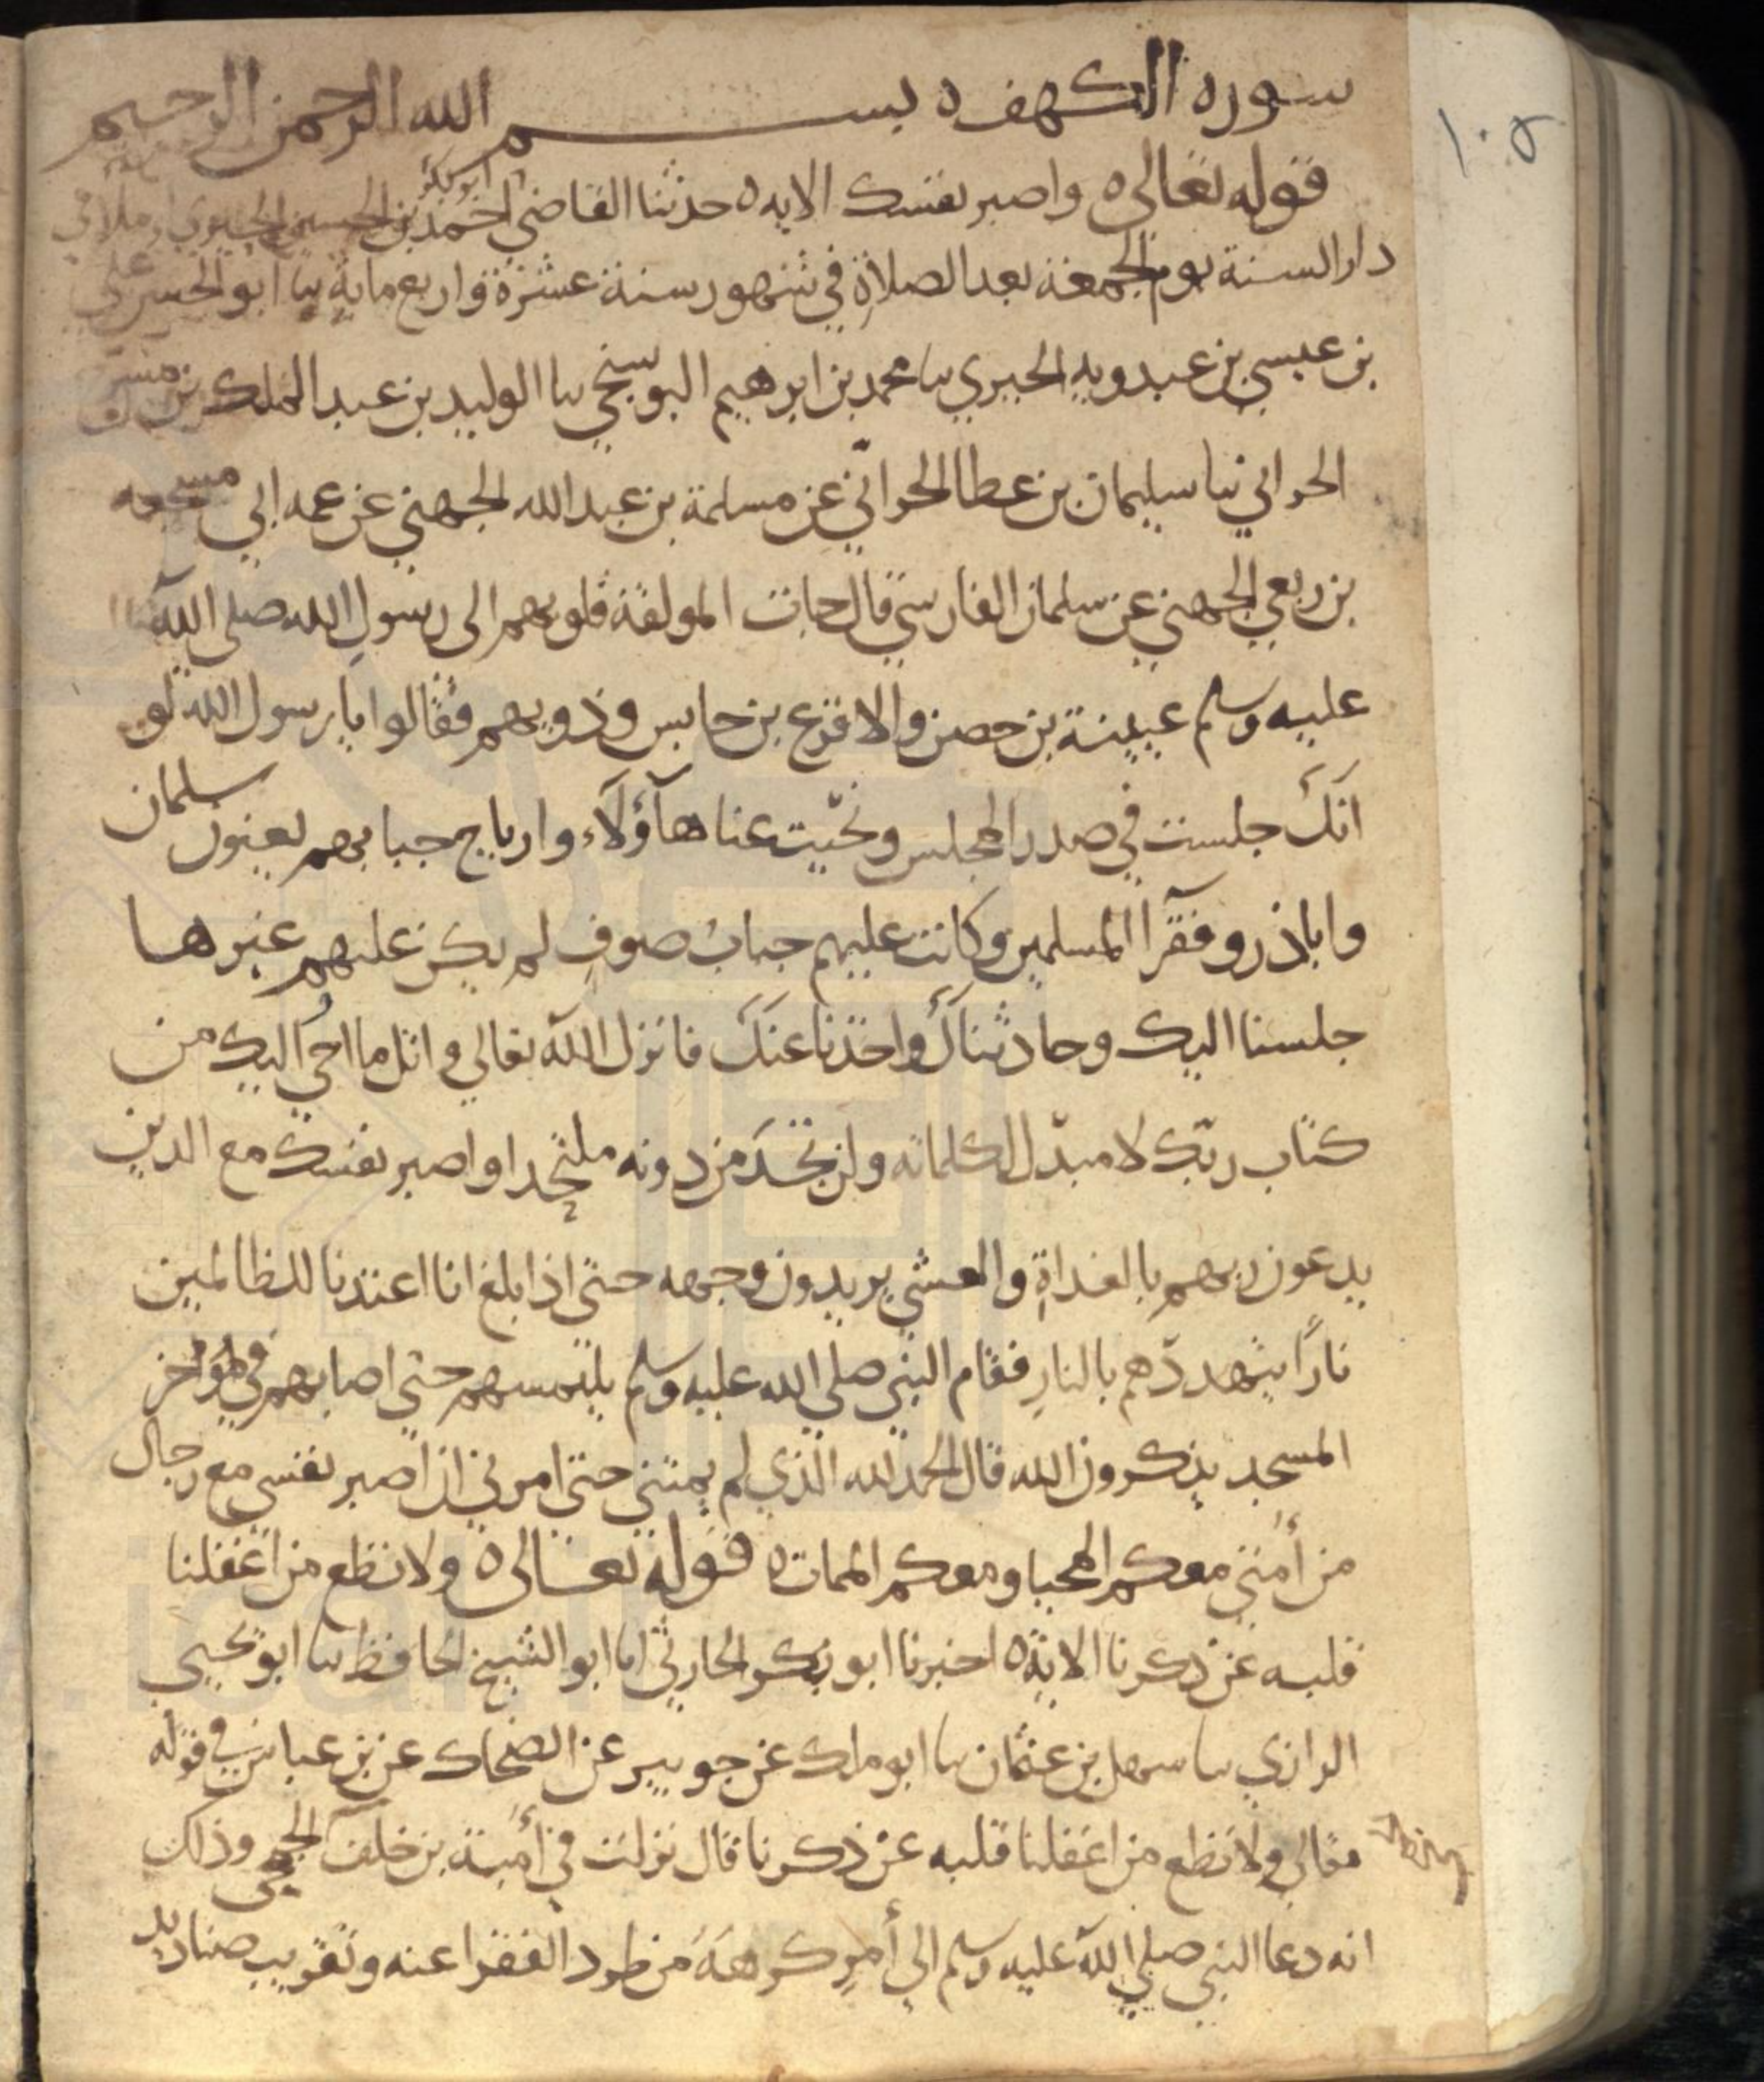 سوره الكهف ه بسم الله الرحمن الرحيم
قوله تعالى ه واصبر نفسك الايه ه حدثنا القاضي ابو بكر احمد بن الحسين الحيري املا في
دار السنة يوم الجمعة بعد الصلاة في شهور سنة عشرة واربع ماية ثنا ابو الحسن علي
بن عيسى بن عبدويه الحيري ثنا محمد بن ابرهيم البوسنجي ثنا الوليد بن عبد الملك بن مسرح
الحراني ثنا سليمان بن عطا الحراني عن مسلمة بن عبد الله الجهني عن عمه ابي مسجعه
بن ربعي الجهني عن سلمان الفارسي قال جات المولفة قلوبهم الى رسول الله صلى الله
عليه وسلم عيينة بن حصن والاقرع بن حابس وذويهم فقالوا يا رسول الله لو
انك جلست في صدر المجلس ونحّيت عنا هآؤلآء وارباح جبابهم يعنون سلمان
وابا ذر وفقرا المسلمين وكانت عليهم جباب صوف لم يكن عليهم غيرها
جلسنا اليك وحادثناك واخذنا عنك فانزل الله تعالى واتل ما احي اليك من
كتاب ربّك لا مبدّل لكلماته ولن تجد من دونه ملتحدا واصبر نفسك مع الذين
يدعون ربهم بالغداة والعشي يريدون وجهه حتى اذا بلغ انا اعتدنا للظالمين
نارًا يتهددّهم بالنار فقام النبي صلى الله عليه وسلم يلتمسهم حتى اصابهم في مؤخر
المسجد يذكرون الله قال الحمد لله الذي لم يمتني حتى امرني ان اصبر نفسي مع رجال
من أمتي معكم المحيا ومعكم الممات ه قوله تعالى ه ولا تطع من اغفلنا
قلبه عن ذكرنا الاية ه اخبرنا ابو بكر الحارثي انا ابو الشيخ الحافظ ثنا ابو يحيى
الرازي ثنا سهل بن عثمان ثنا ابو ملك عن جويبر عن الضحاك عن بن عباس في قوله
تعالى ولا تطع من اغفلنا قلبه عن ذكرنا قال نزلت في أمية بن خلف الجمحي وذلك
انه دعا النبي صلى الله عليه وسلم الى أمر كرهه من طرد الفقرا عنه وتقريب صناديد
١٠٥